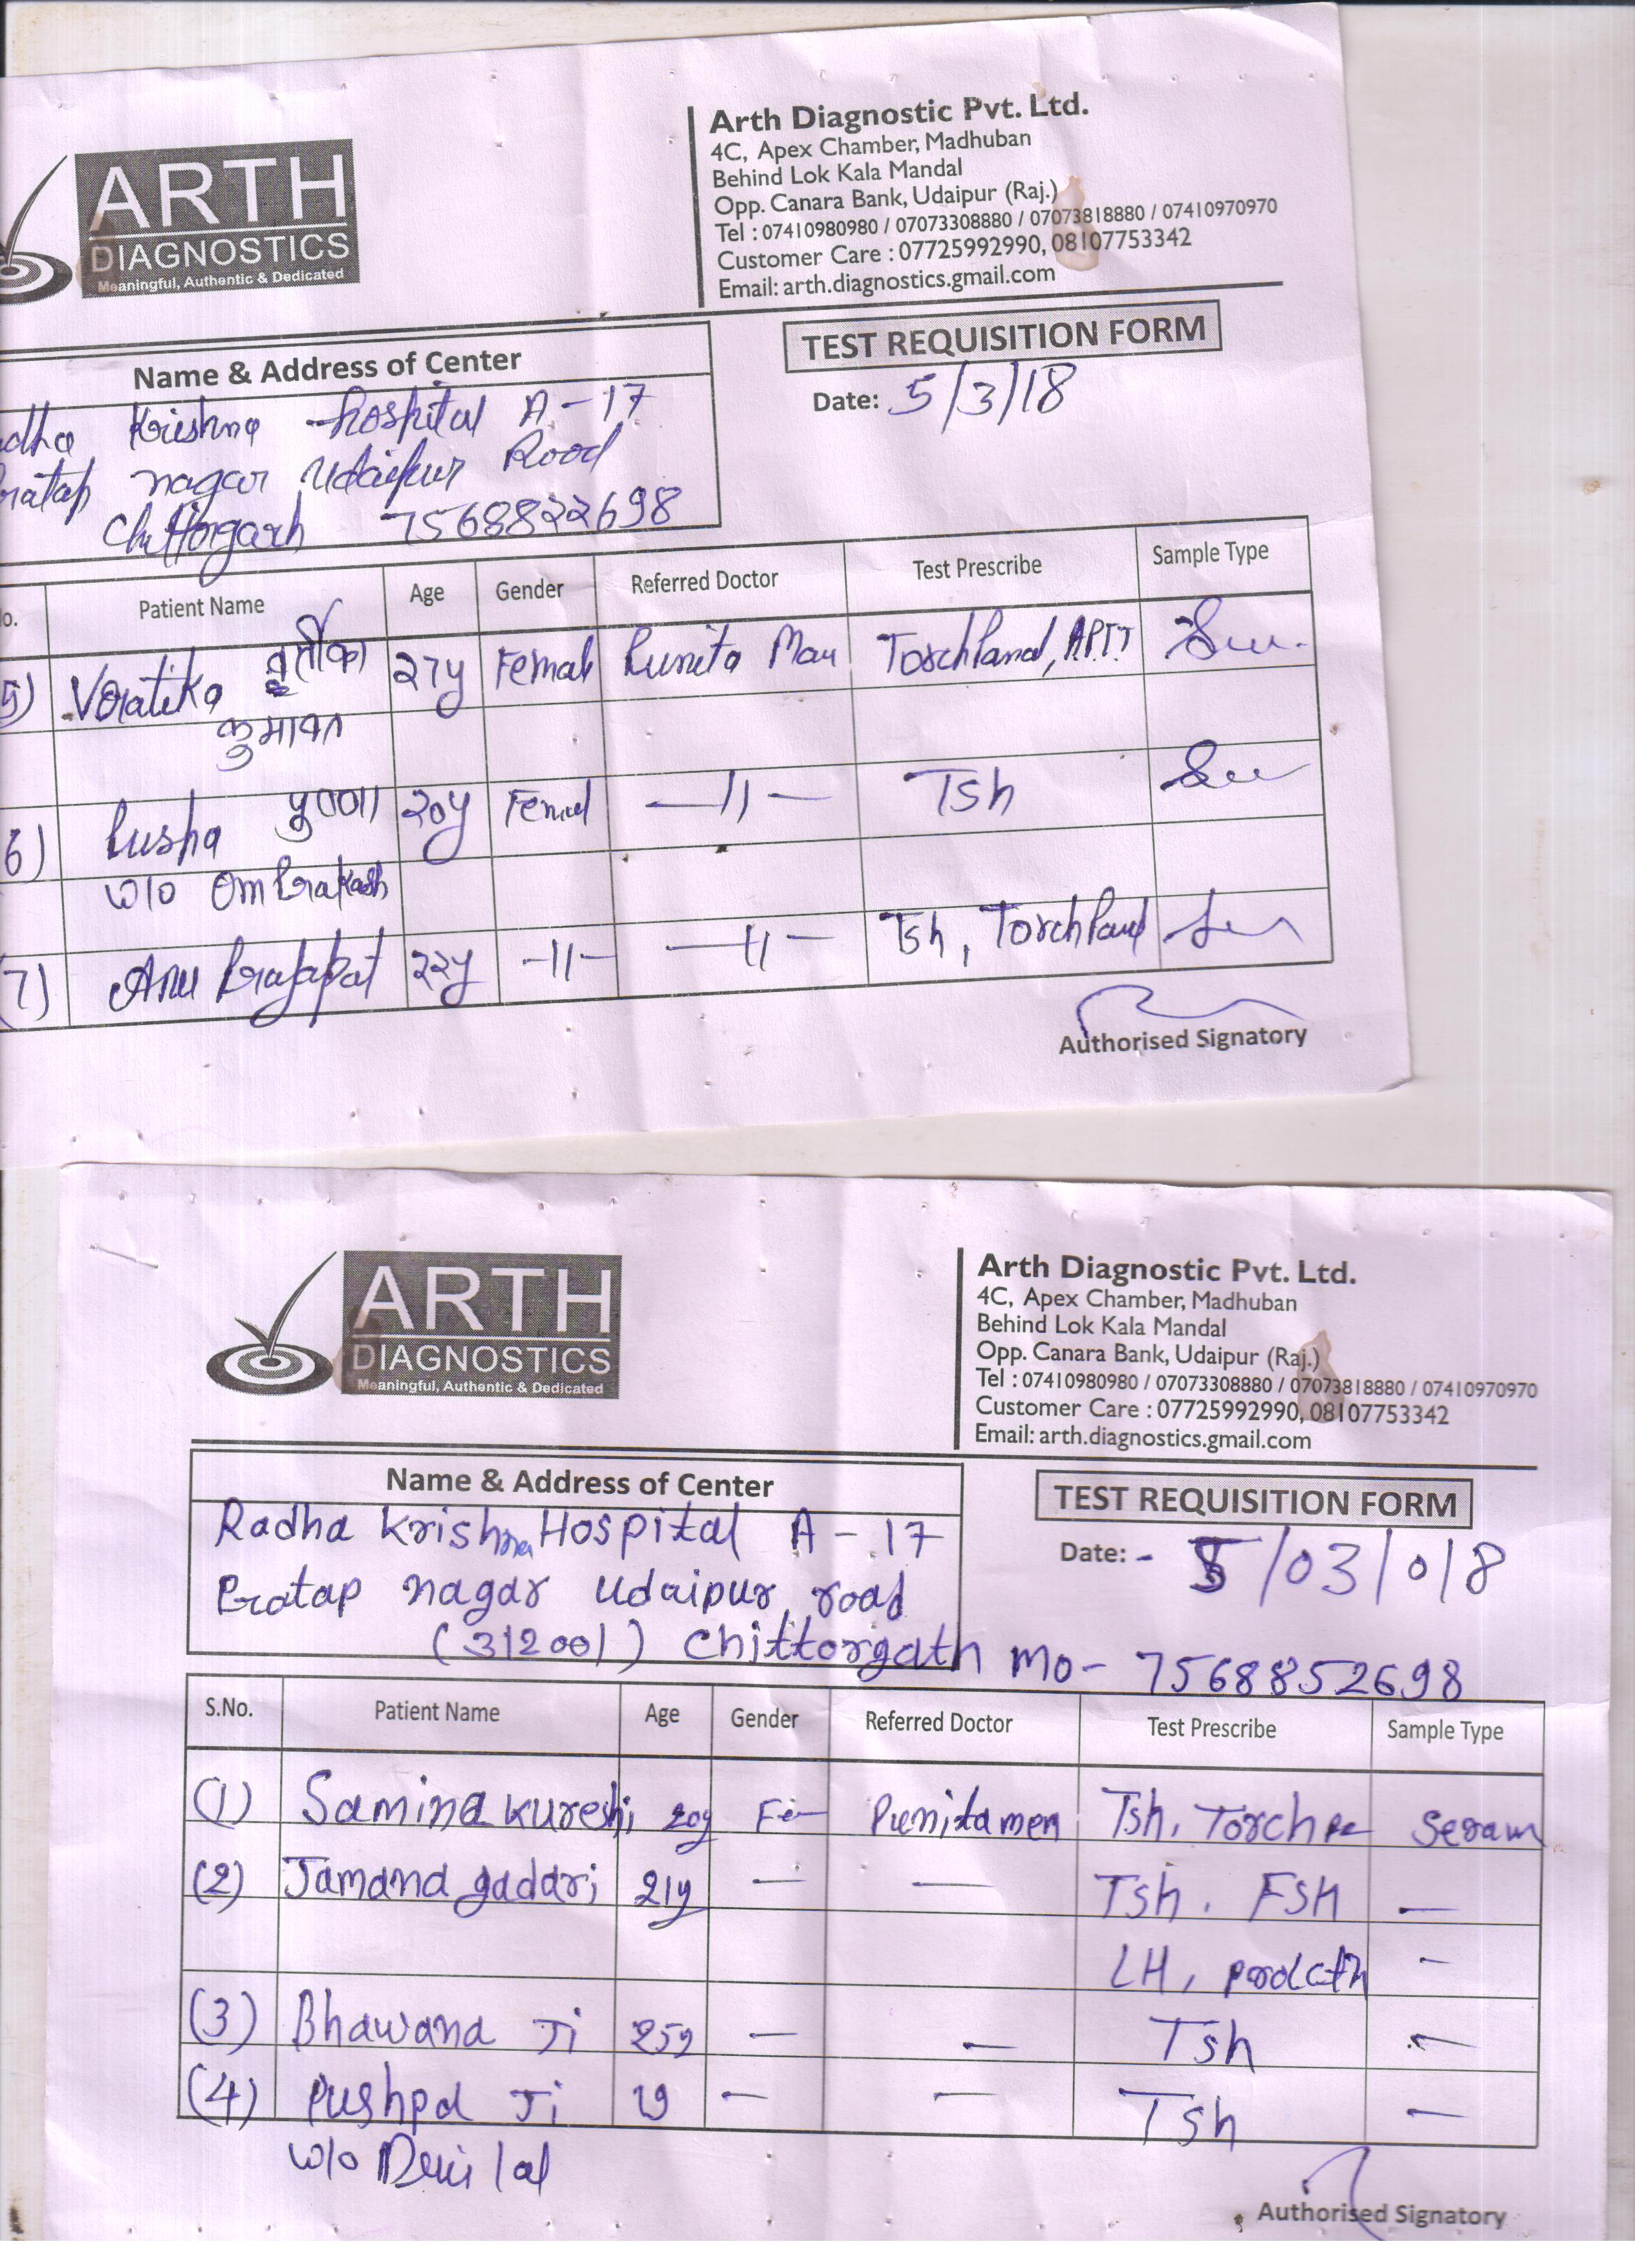 ARTH
DIAGNOSTICS
Meaningful, Authentic & Dedicated
Arth Diagnostic Pvt. Ltd.
4C, Apex Chamber, Madhuban
Behind Lok Kala Mandal
Opp. Canara Bank, Udaipur (Raj.)
Tel : 07410980980 / 07073308880 / 07073818880 / 07410970970
Customer Care : 07725992990, 08107753342
Email: arth.diagnostics.gmail.com
Name & Address of Center
TEST REQUISITION FORM
Date: 5/3/18
adha Krishna hospital A-17
ratap nagar Udaipur Road
Chittorgarh 7568822698
o. Patient Name Age Gender Referred Doctor Test Prescribe Sample Type
5) Vratika 27y Female Punita Mam Torchpanal, APTT
कुमावत
6) Pusha 20y Femal —11— Tsh
w/o Om Prakash
7) Anu Prajapat 22y -11- —11— Tsh, Torch Panel
Authorised Signatory
ARTH
DIAGNOSTICS
Meaningful, Authentic & Dedicated
Arth Diagnostic Pvt. Ltd.
4C, Apex Chamber, Madhuban
Behind Lok Kala Mandal
Opp. Canara Bank, Udaipur (Raj.)
Tel : 07410980980 / 07073308880 / 07073818880 / 07410970970
Customer Care : 07725992990, 08107753342
Email: arth.diagnostics.gmail.com
Name & Address of Center
TEST REQUISITION FORM
Date: - 5/03/018
Radha Krishna Hospital A-17
Pratap nagar Udaipur road
(312001) Chittorgath mo- 7568852698
S.No. Patient Name Age Gender Referred Doctor Test Prescribe Sample Type
(1) Samina kureshi 20y Fe- Punitamem Tsh, Torch Pe Seram
(2) Jamana gadari 21y — — Tsh. FSH —
LH, prolctin -
(3) Bhawana Ji 25y — — Tsh -
(4) Pushpa Ji — — Tsh —
w/o Devi lal
Authorised Signatory